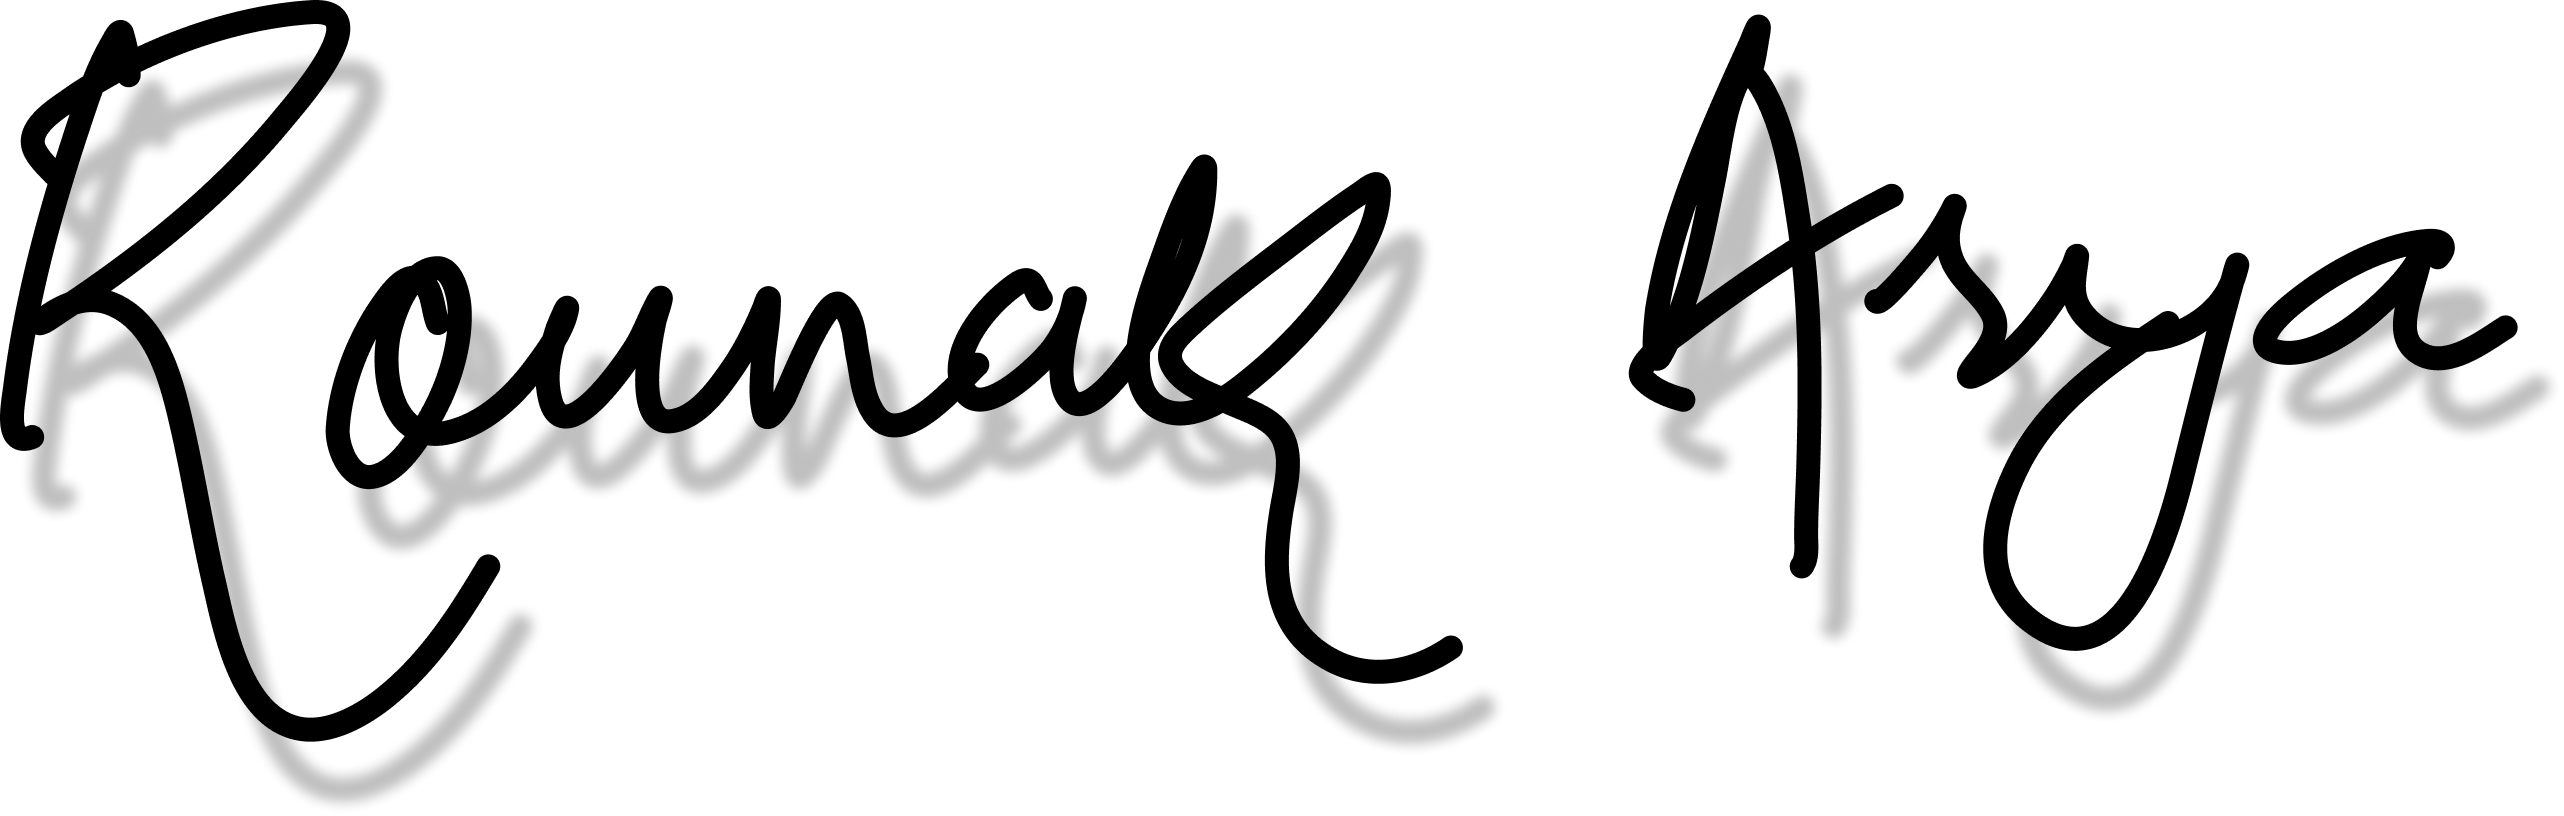 Rounak Arya